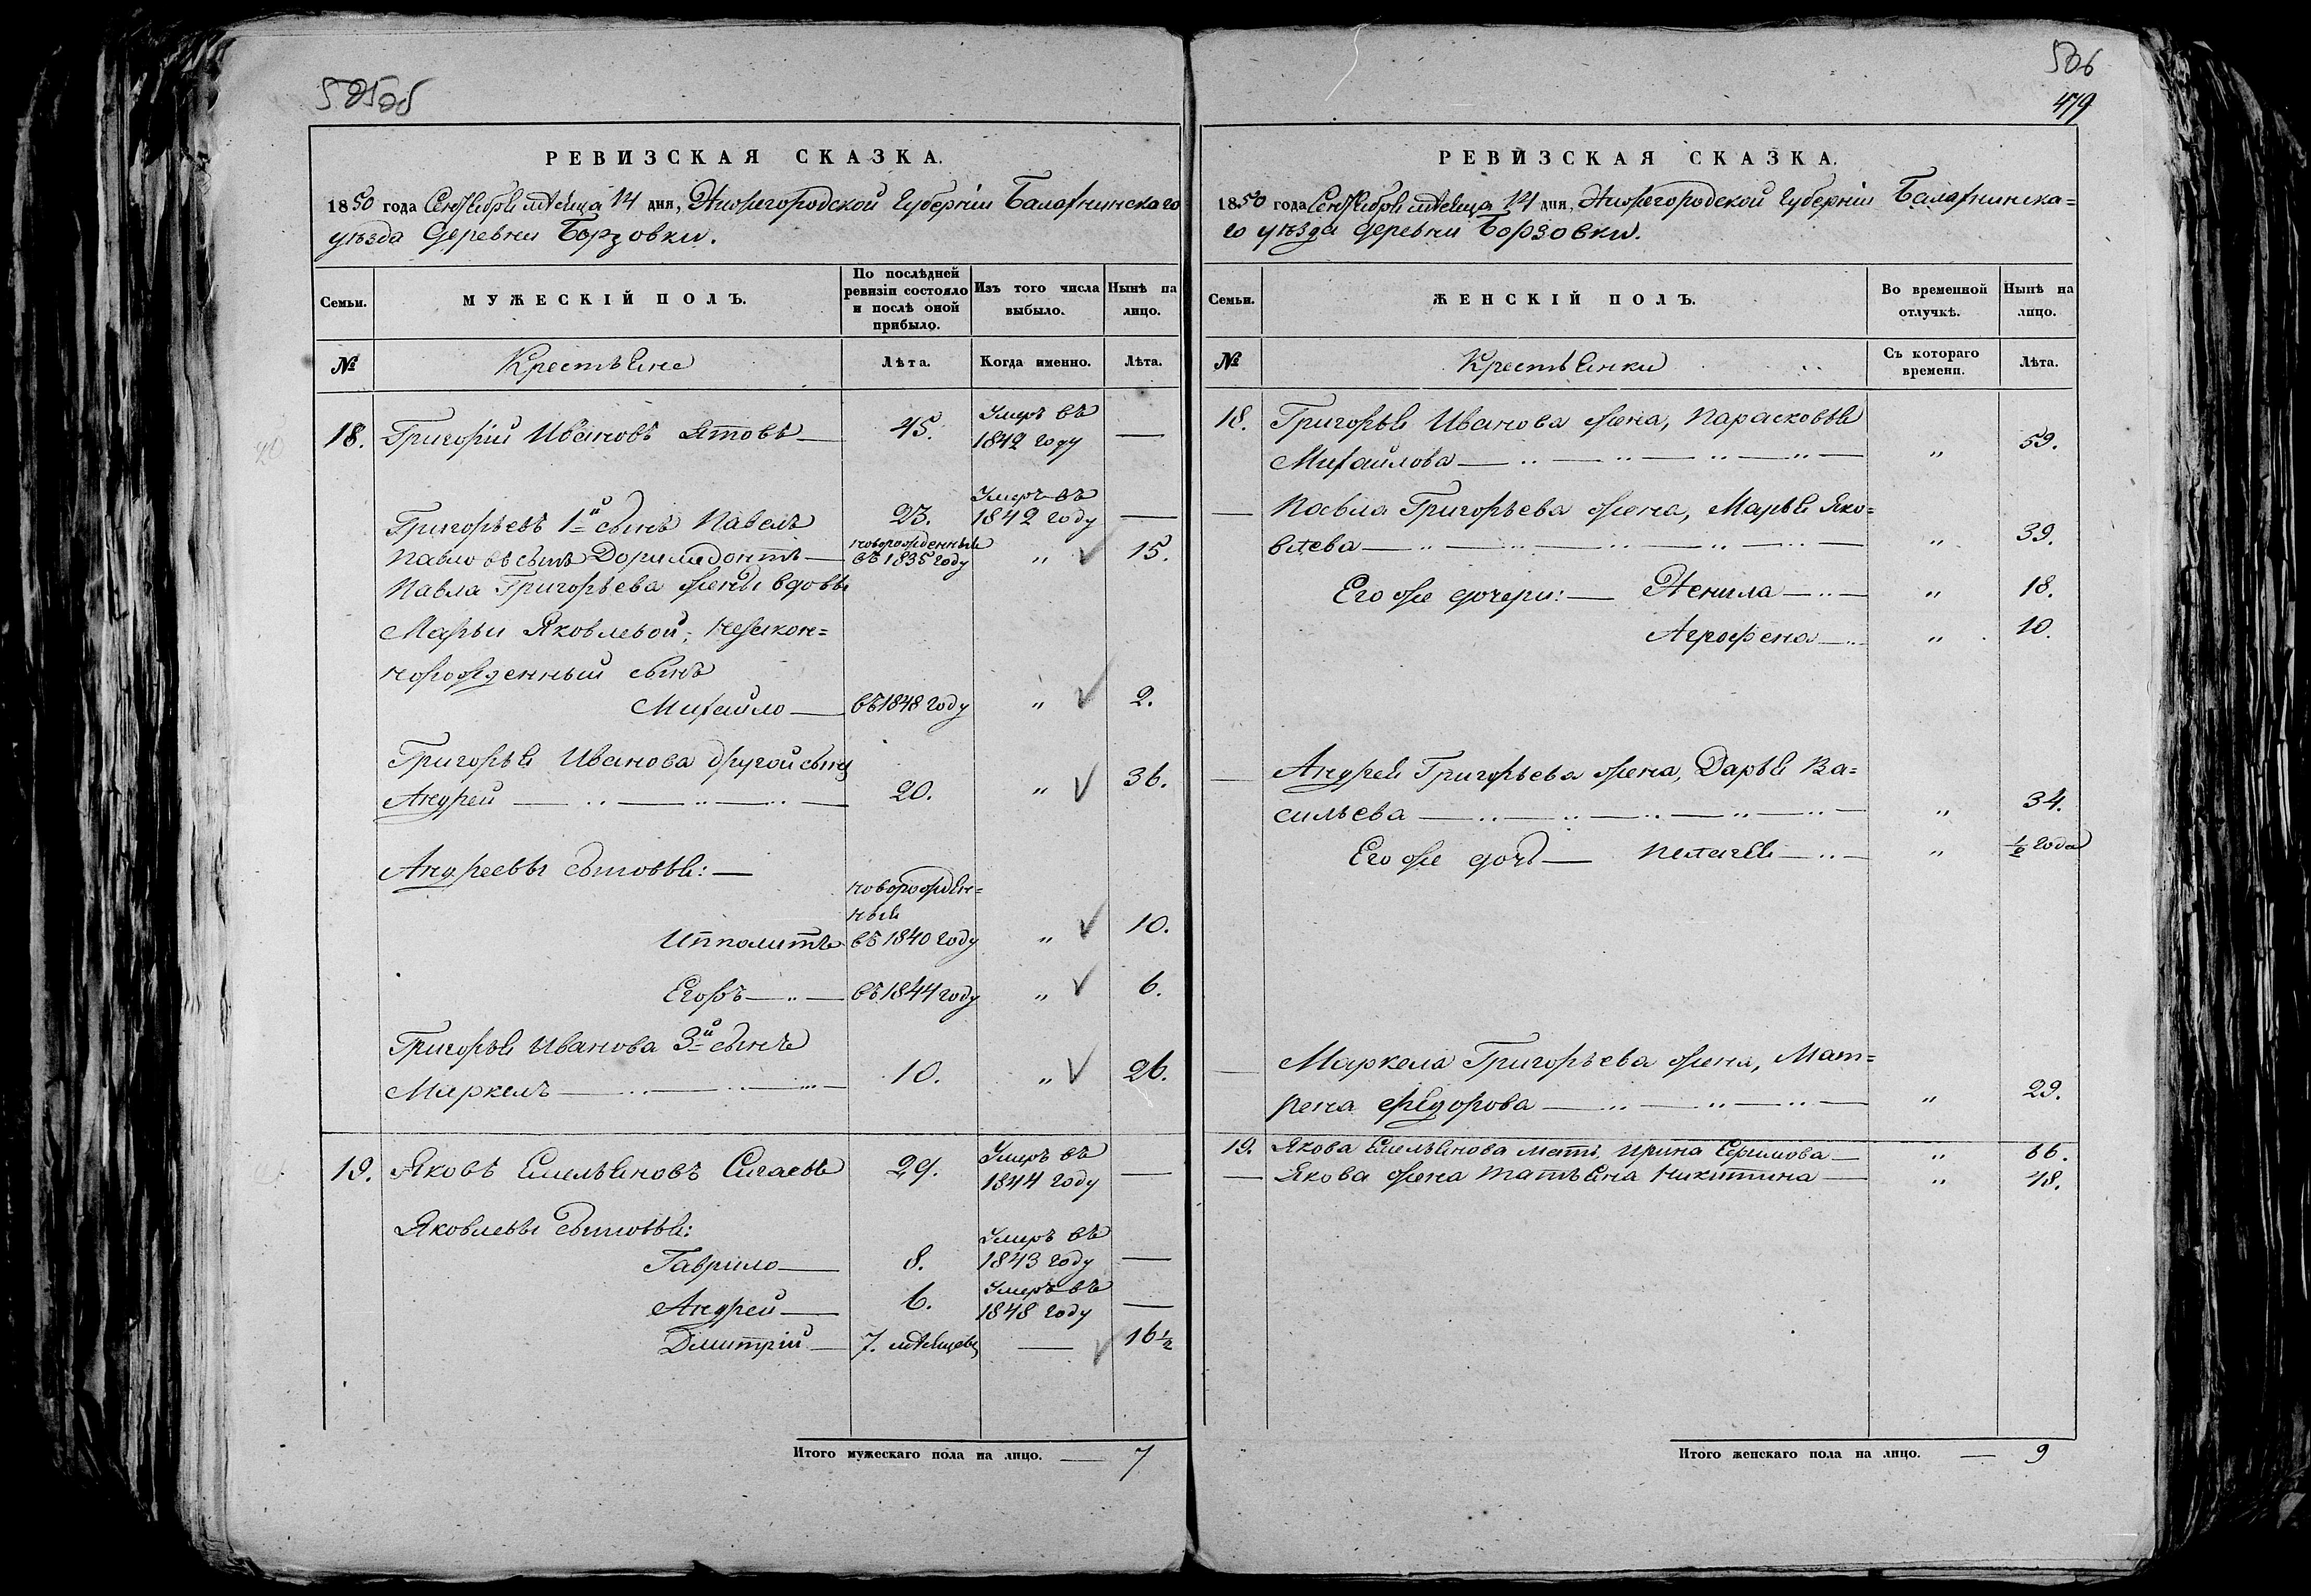 505об
РЕВИЗСКАЯ СКАЗКА.
1850 года Сентября мѣсяца 14 дня, Нижегородской Губерніи Балахнинскаго
уѣзда деревни Борзовки.
Семьи.
МУЖЕСКІЙ ПОЛЪ.
По послѣдней ревизіи состояло и послѣ оной прибыло.
Изъ того числа выбыло.
Нынѣ на лицо.
№
Крестьяне
Лѣта.
Когда именно.
Лѣта.
18. Григорій Ивановъ Ятовъ — 45. Умеръ въ 1842 году —
Григорьевъ 1й сынъ Павелъ 23. Умеръ въ 1842 году —
Павловъ сынъ Доримедонтъ — новорожденный въ 1835 году " 15.
Павла Григорьева жены вдовы
Марьи Яковлевой, незакон=
норожденный сынъ
Михайло — въ 1848 году " 2.
Григорья Иванова другой сынъ
Андрей — 20. " 36.
Андреевы сыновья: —
новорожден=
ный
Ипполитъ въ 1840 году " 10.
Егоръ — въ 1844 году " 6.
Григорья Иванова 3й сынъ
Маркелъ — 10. " 26.
19. Яковъ Емельяновъ Сигаевъ 29. Умеръ въ 1844 году —
Яковлевы сыновья:
Гаврило — 8. Умеръ въ 1843 году —
Андрей — 6. Умеръ въ 1848 году —
Дмитрій — 7. мѣсяцевъ — 16½
Итого мужескаго пола на лицо. — 7
506
479
РЕВИЗСКАЯ СКАЗКА.
1850 года Сентября мѣсяца 14 дня, Нижегородской Губерніи Балахнинска=
го уѣзда деревни Борзовки.
Семьи.
ЖЕНСКІЙ ПОЛЪ.
Во временной отлучкѣ.
Нынѣ на лицо.
№
Крестьянки
Съ котораго времени.
Лѣта.
18. Григорья Иванова жена, Парасковья
Михайлова — " 59.
— Павла Григорьева жена, Марья Яко=
влева — " 39.
Его же дочери: — Ненила — " 18.
Агрофена — " 10.
— Андрея Григорьева жена, Дарья Ва=
сильева — " 34.
Его же дочь — Пелагея — " ½ года
— Маркела Григорьева жена, Мат=
рена Федорова — " 29.
19. Якова Емельянова мать, Ирина Ефимова — " 66.
— Якова жена Татьяна Никитина — " 48.
Итого женскаго пола на лицо. — 9